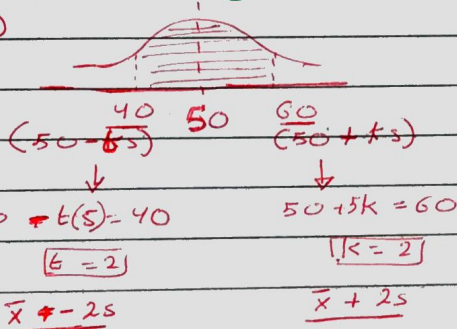 )
40 50 60
(50 - ts) (50 + ks)
↓ ↓
0 - t(5) = 40 50 + 5k = 60
t = 2 k = 2
x̄ - 2s x̄ + 2s